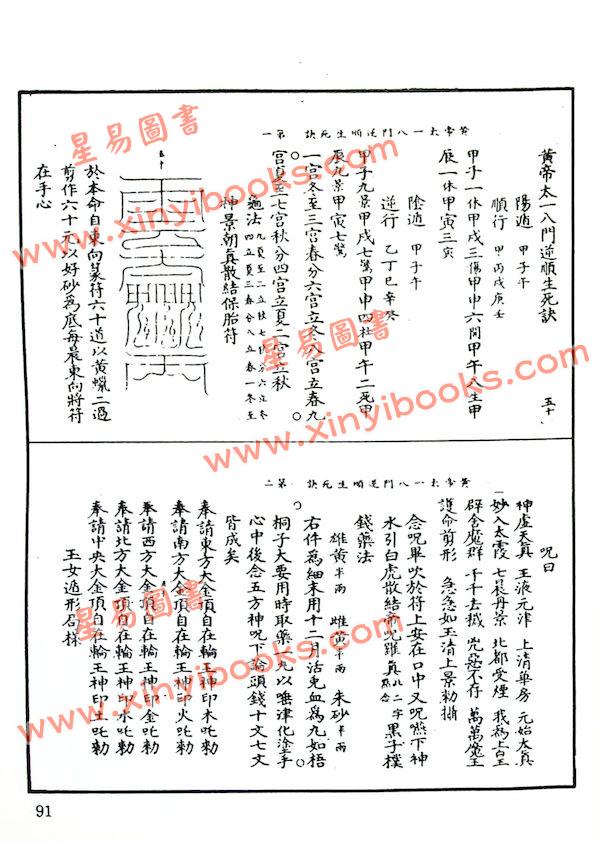 黃帝太一八門逆順生死訣
五十
陽遁 甲子午
順行 甲丙戊庚壬
甲子一休甲戌三傷甲申六開甲午八生甲
辰一休甲寅三
陰遁 甲子午
逆行 乙丁己辛癸
甲子九景甲戌七驚甲申四杜甲午二死甲
辰九景甲寅七驚
一宮冬至三宮春分六宮立冬八宮立春九
宮夏至七宮秋分四宮立夏二宮立秋
神景朝真散結保胎符
於本命自東向篆符六十道以黃蠟二過
剪作六十元以好砂為底每晨東向將符
在手心
黃帝太一八門逆順生死訣 第一
黃帝太一八門逆順生死訣 第二
咒曰
神虛太真 王液元津 上清華房 元始太真
妙入太霞 七晨丹景 北都受煙 我為上白王
辟舍魔群 千千去 兇惡不存 萬萬魔王
護命剪形 急急如玉清上景勅
念咒畢吹於符上安在口中又咒嚥下神
水引白虎散結帝咒 真 二字 黑子樸
錢藥法
雄黃半兩 雌黃半兩 朱砂半兩
右件為細末用十二月活兔血為丸如梧
桐子大要用時取藥一丸以唾津化塗手
心中後念五方神咒下 頭錢十文七文
皆成矣
奉請東方大金頂自在輪王神印木吒勅
奉請南方大金頂自在輪王神印火吒勅
奉請西方大金頂自在輪王神印金吒勅
奉請北方大金頂自在輪王神印水吒勅
奉請中央大金頂自在輪王神印土吒勅
玉女遁形召
91
星易圖書
www.xinyibooks.com
星易圖書
www.xinyibooks.com
www.xinyibooks.com
星易圖書
www.xinyibooks.com